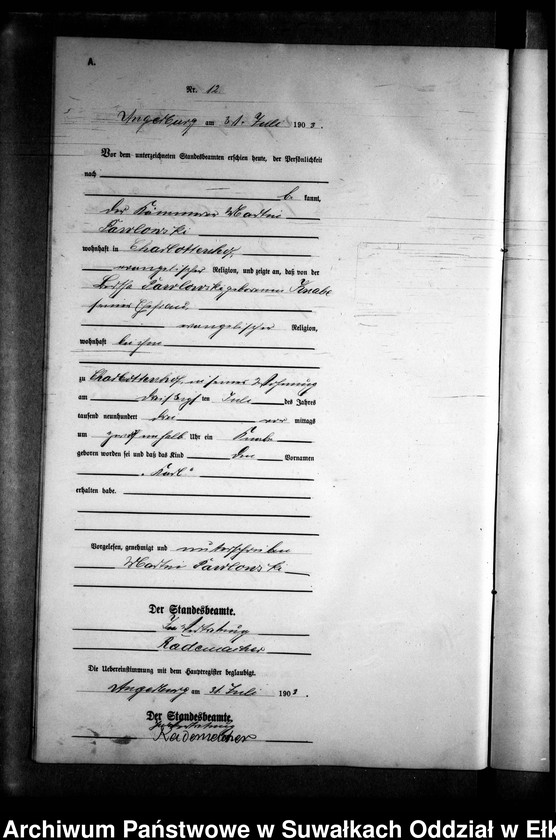 A.
Nr. 12.
Angerburg am 31. Juli 1903.
Vor dem unterzeichneten Standesbeamten erschien heute, der Persönlichkeit
nach
b kannt,
der Kämmerer Martin
Pawlowski
wohnhaft in Charlottenhof,
evangelischer Religion, und zeigte an, daß von der
Pawlowski geborenen Knabe
seiner Ehefrau,
evangelischer Religion,
wohnhaft bei ihm
zu Charlottenhof, in seiner Wohnung
am dreißigsten Juli des Jahres
tausend neunhundert drei vor mittags
um Uhr ein Knabe
geboren worden sei und daß das Kind den Vornamen
"Karl"
erhalten habe.
Vorgelesen, genehmigt und unterschrieben
Martin Pawlowski
Der Standesbeamte.
In Vertretung
Rademacher
Die Uebereinstimmung mit dem Hauptregister beglaubigt.
Angerburg am 31. Juli 1903.
Der Standesbeamte.
In Vertretung
Rademacher
Archiwum Państwowe w Suwałkach Oddział w Ełk